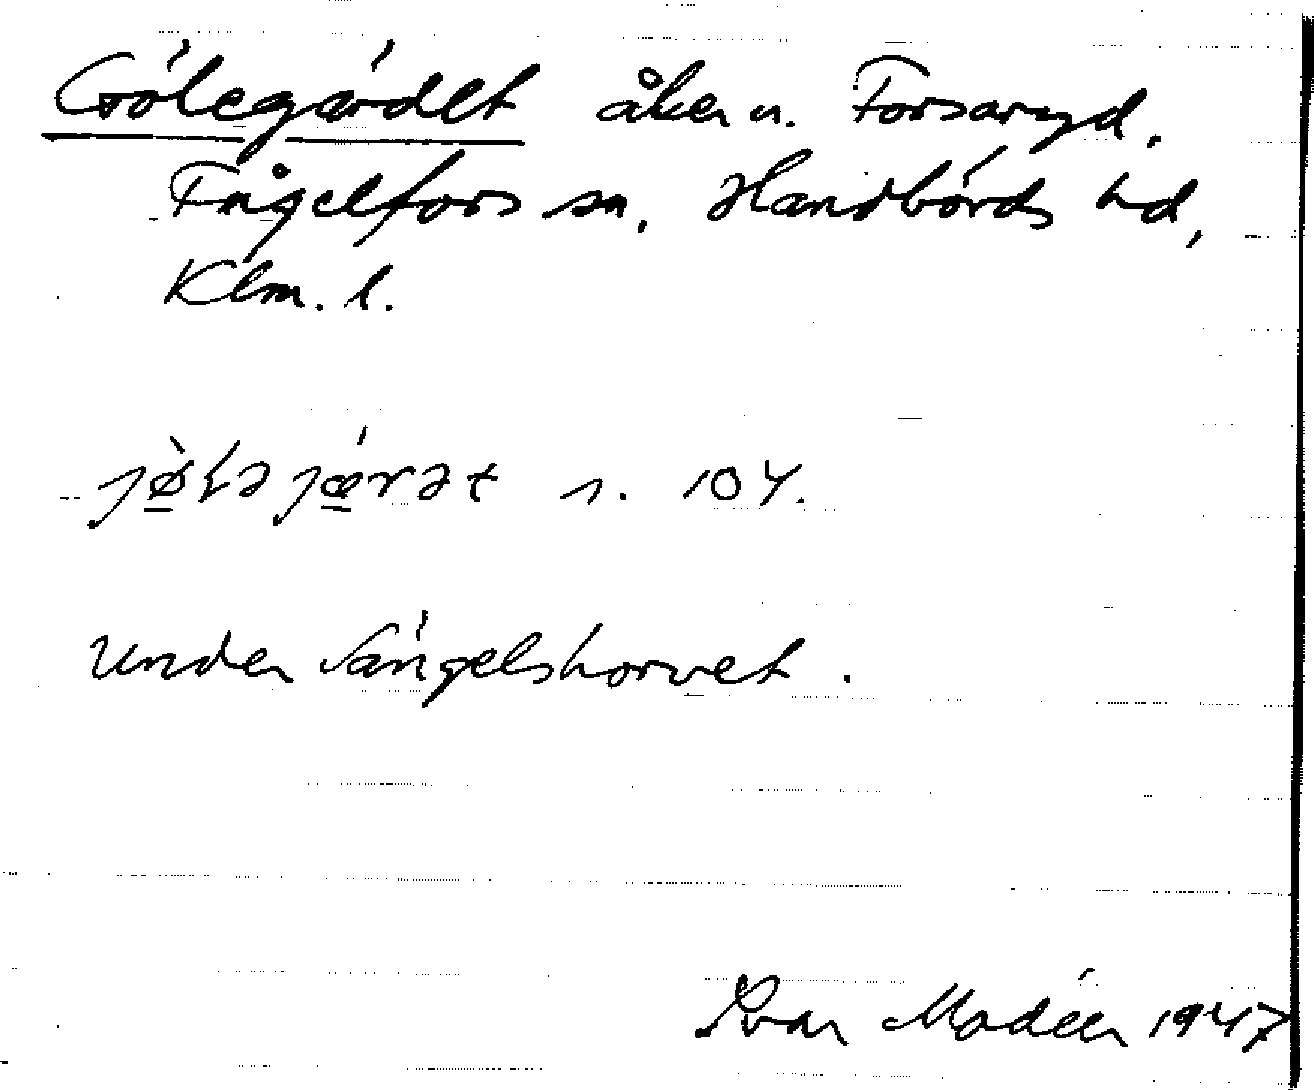 Gölegärdet åker n. Forsaryd,
Fågelfors sn, Handbörds hd,
Klm. l.
jø̀ɫəjǽrət s. 104.
Under Sängelshorvet.
Ivar Modéer 1947